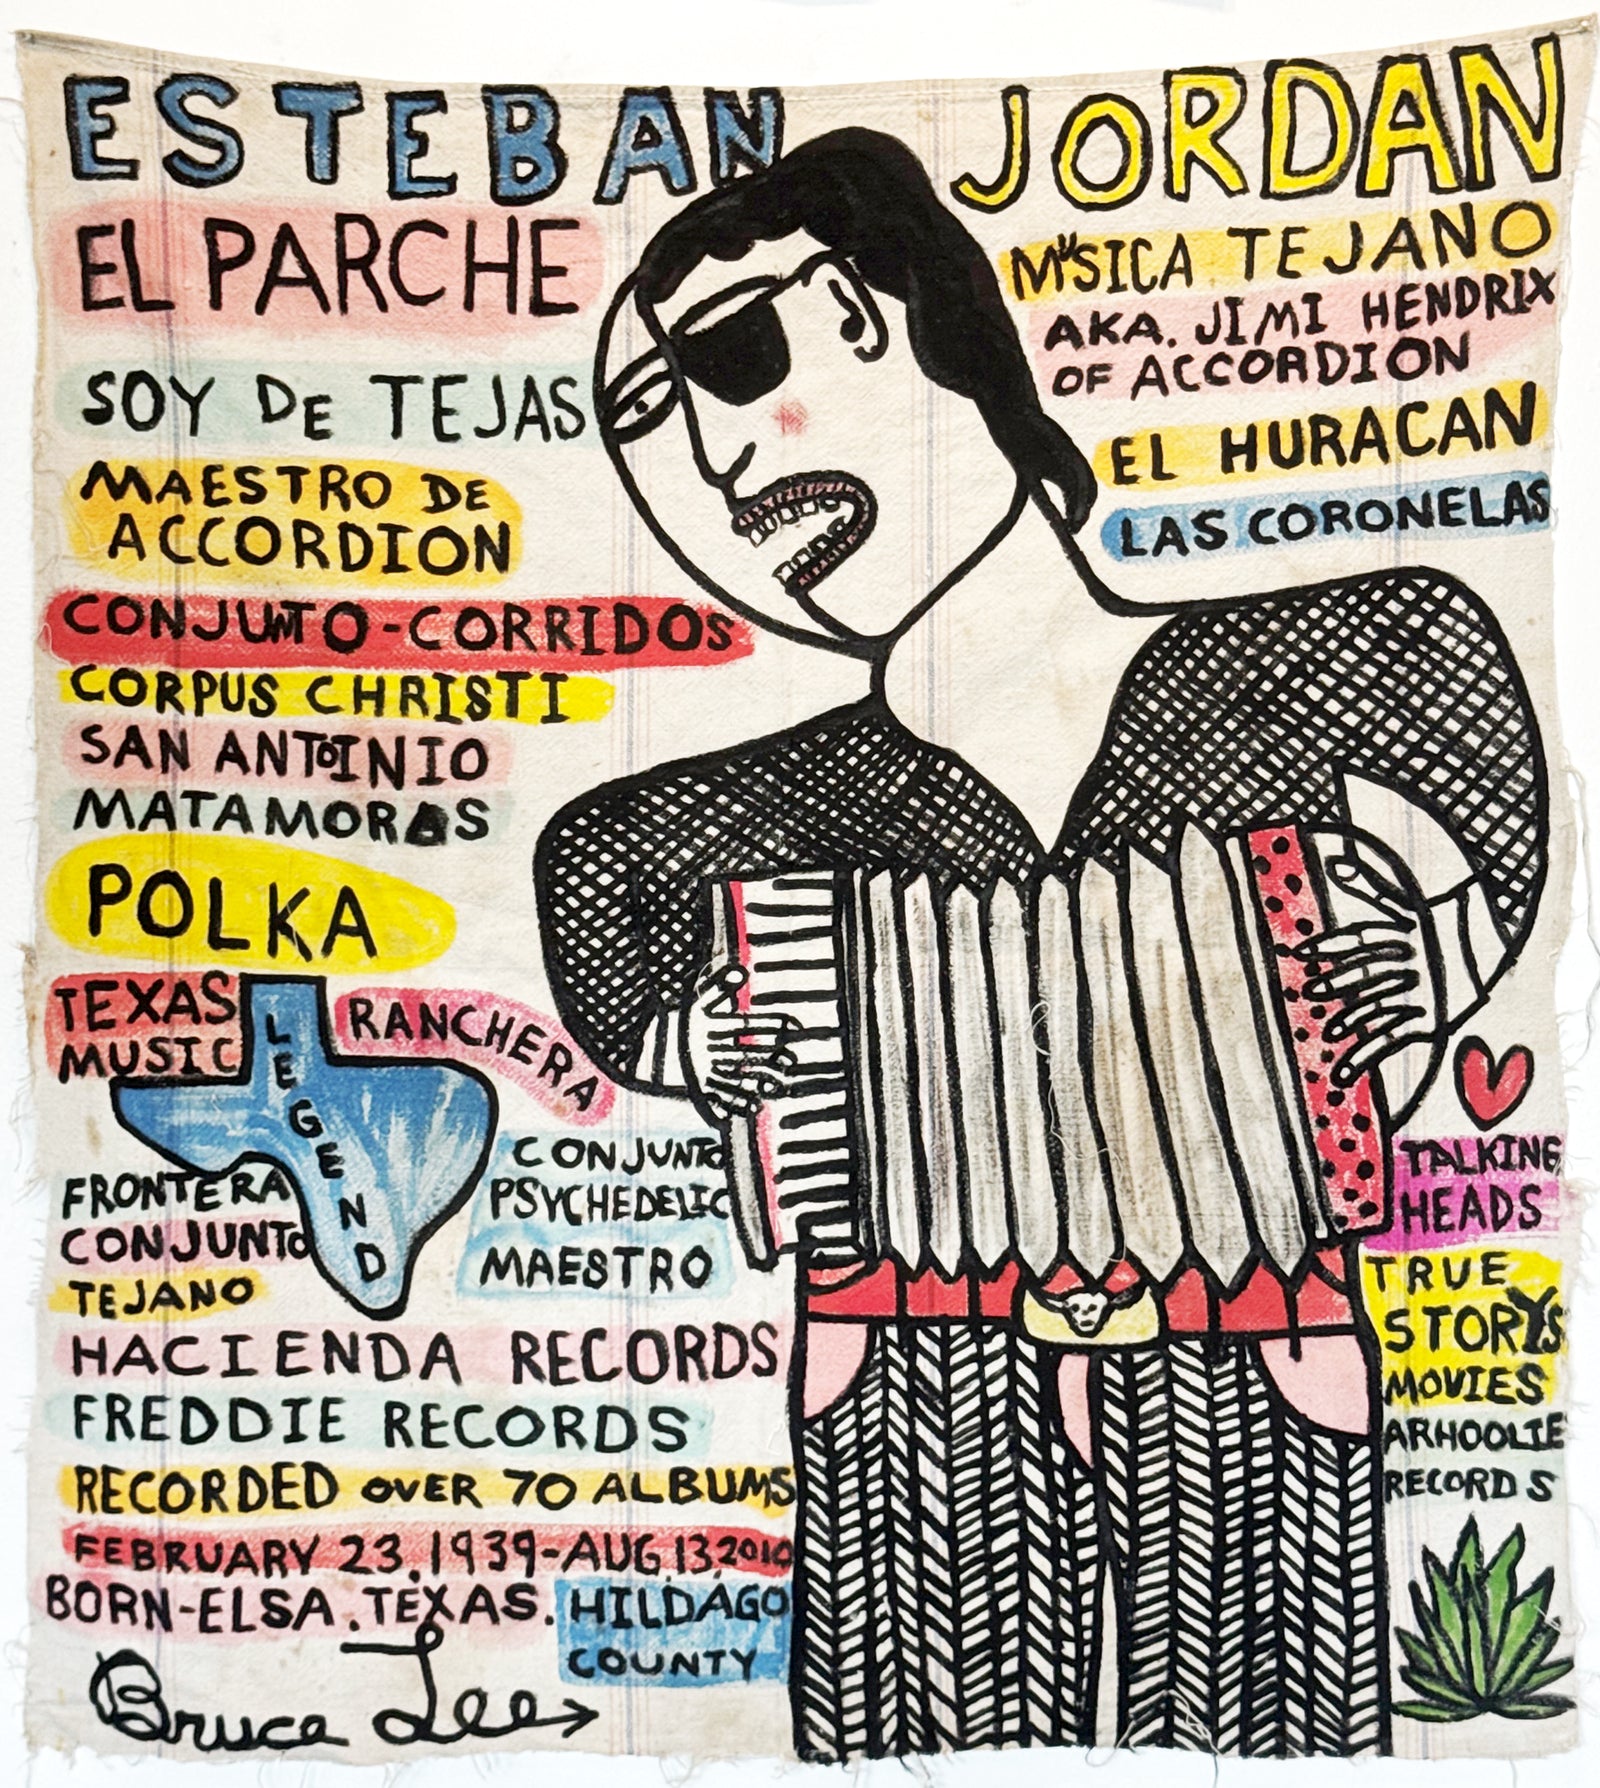 ESTEBAN JORDAN
EL PARCHE
SOY DE TEJAS
MAESTRO DE
ACCORDION
CONJUNTO-CORRIDOS
CORPUS CHRISTI
SAN ANTOINIO
MATAMOROS
POLKA
TEXAS
MUSIC
LEGEND
RANCHERA
FRONTERA
CONJUNTO
TEJANO
CONJUNTO
PSYCHEDELIC
MAESTRO
HACIENDA RECORDS
FREDDIE RECORDS
RECORDED OVER 70 ALBUMS
FEBRUARY 23, 1939-AUG. 13, 2010
BORN-ELSA. TEXAS. HILDAGO
COUNTY
Bruce Lee
MUSICA TEJANO
AKA. JIMI HENDRIX
OF ACCORDION
EL HURACAN
LAS CORONELAS
TALKING
HEADS
TRUE
STORYS
MOVIES
ARHOOLIE
RECORDS